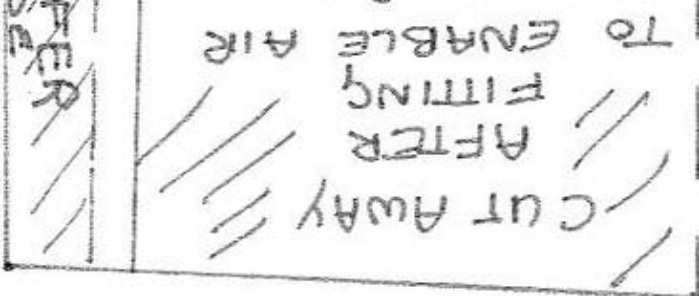 CUT AWAY
AFTER
FITTING
TO ENABLE AIR
FER